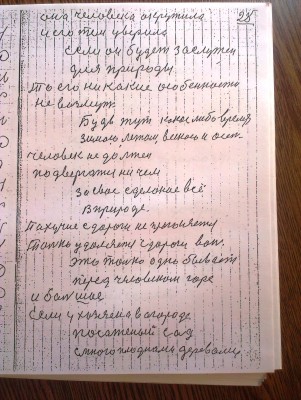 она человека окружила
и его тем уверила
если он будет заслужен
для природы
то его никакие особенности
не возмут.
Будь тут какое либо время
Зимою, летом, весною и осен.
человек не должен
подвергати ничем
за свое сделоное всё
в природе.
Пахучие с дороги не прогоняет
Только удоляется с дороги вон.
Это только одно бывает
перед человеком горе
и большое
Если у хозяина в огороде
посаженый сад
с многоплодными деревами
28